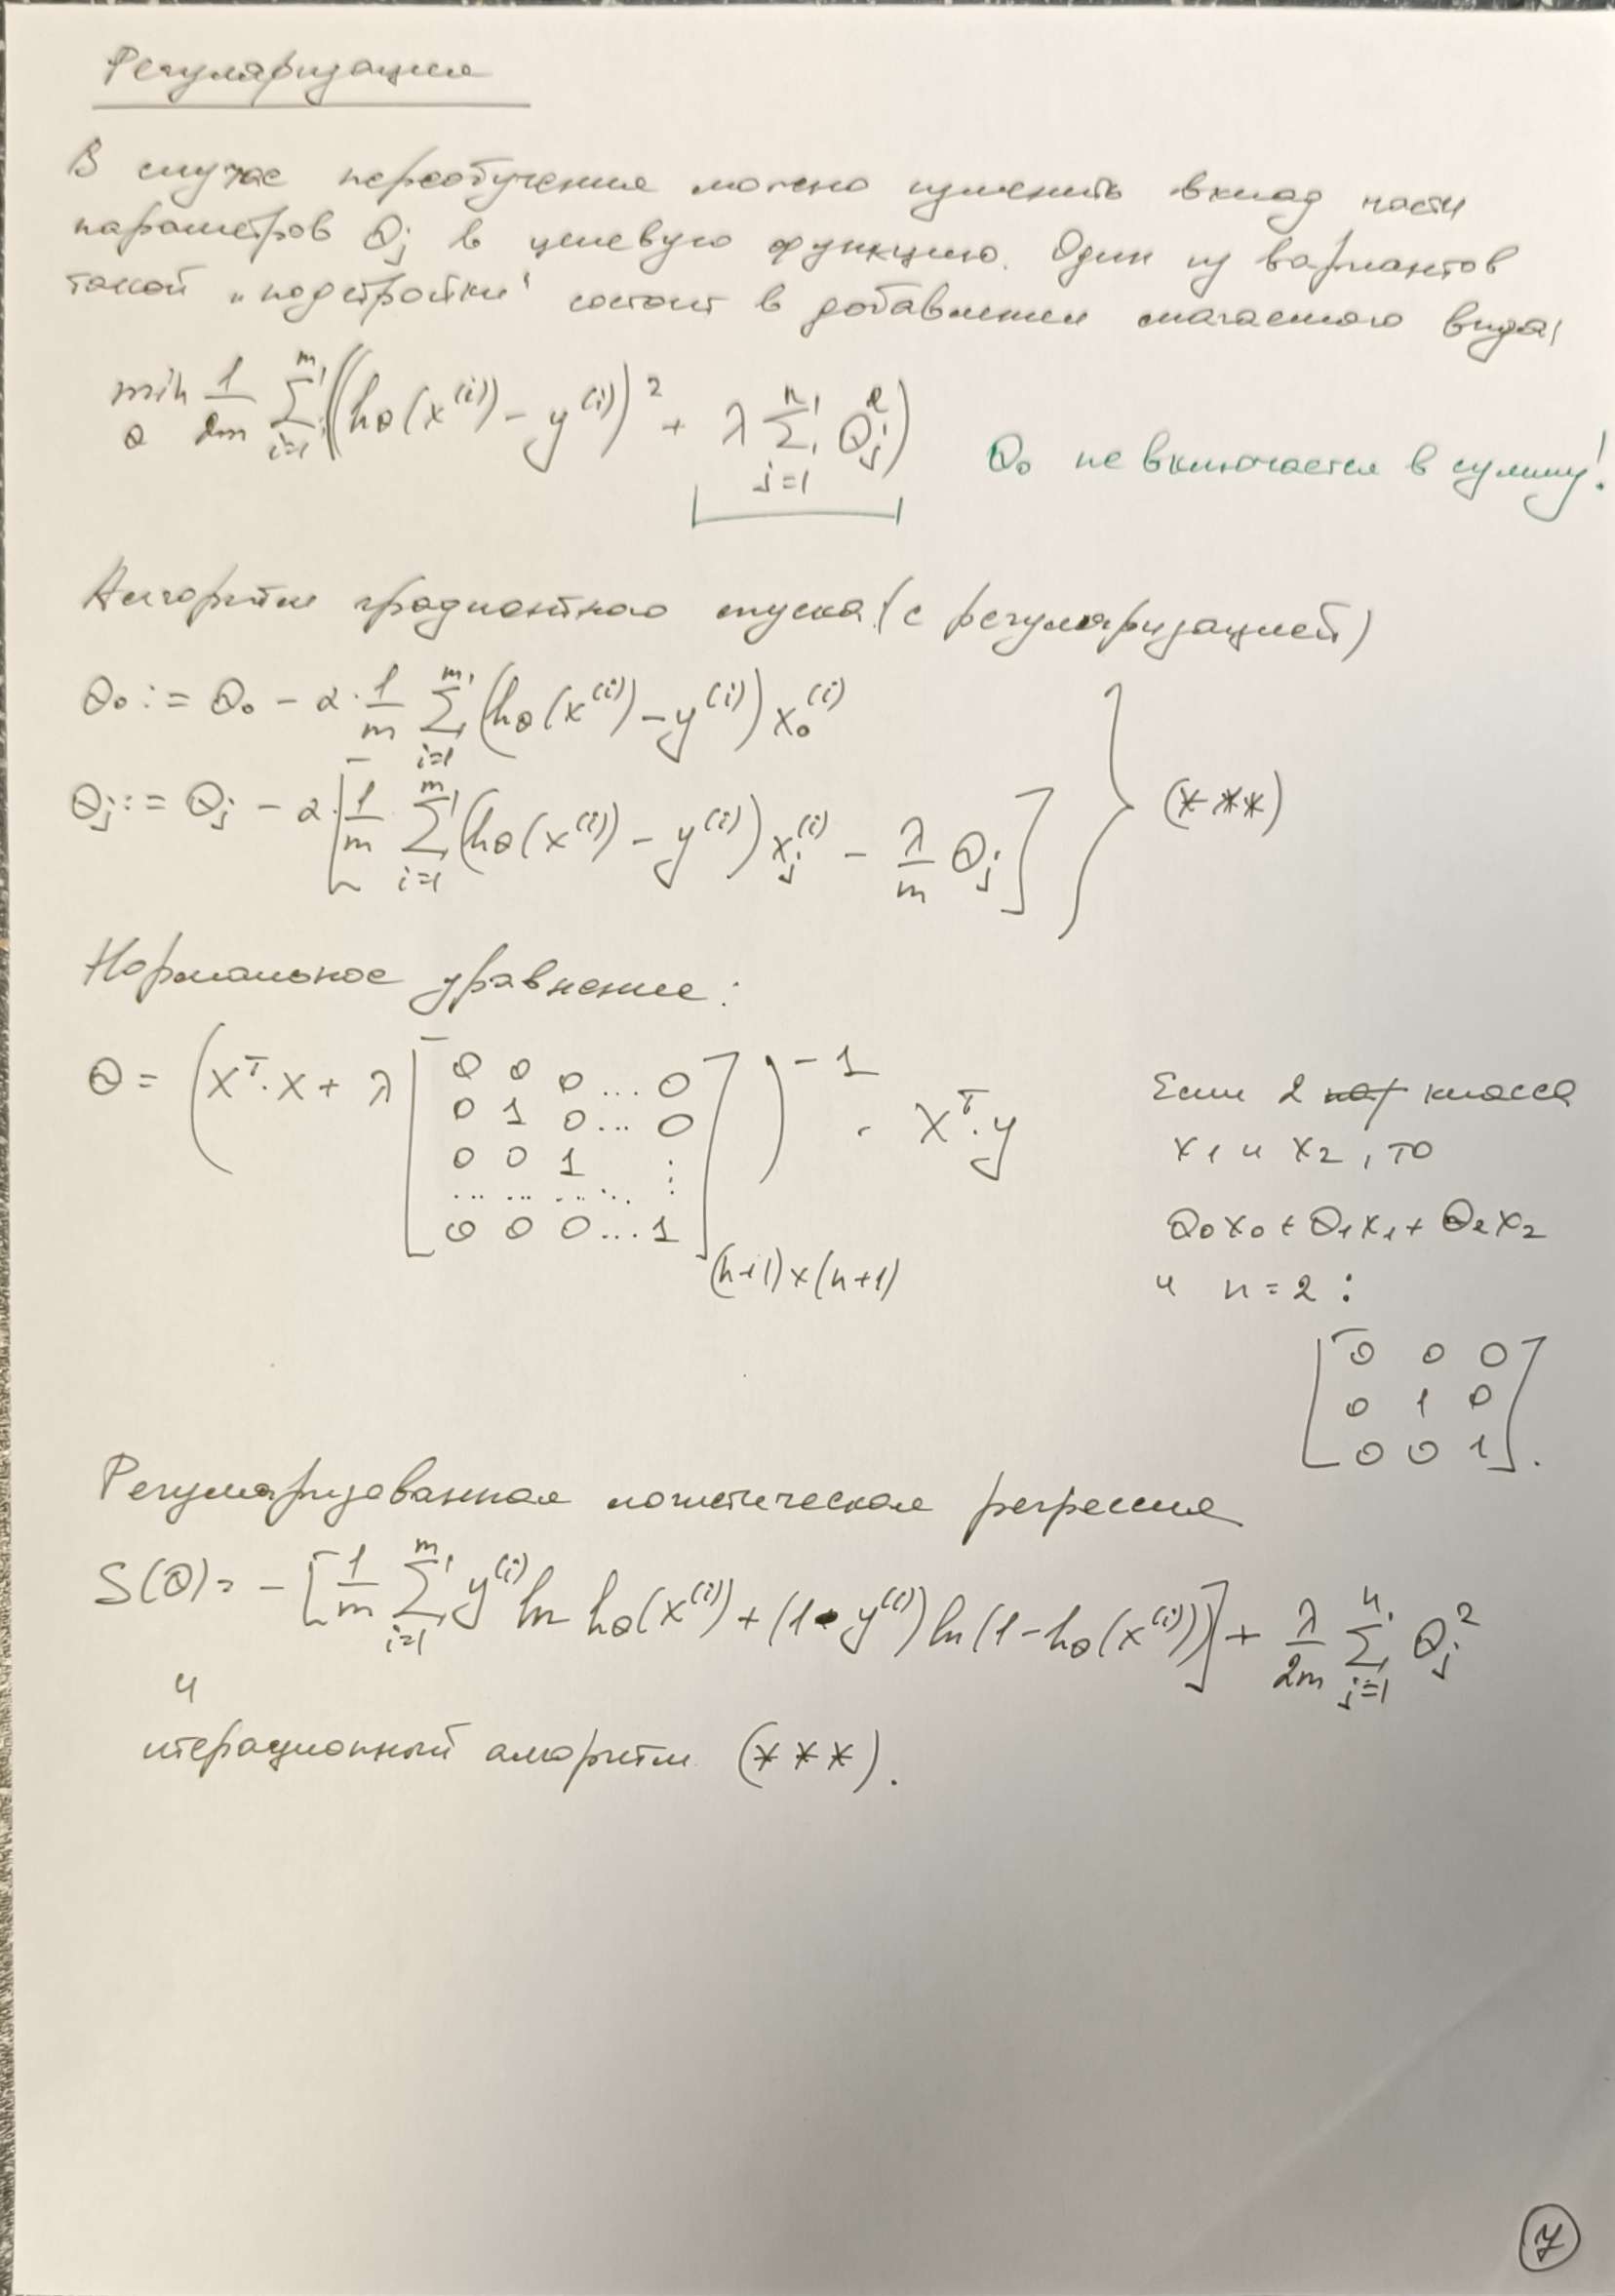 Регуляризация
В случае переобучения можно изменить вклад части
параметров θj в целевую функцию. Один из вариантов
такой „подстройки“ состоит в добавлении слагаемого вида:
min_θ 1/2m ∑_{i=1}^{m} ((hθ(x^(i)) − y^(i))^2 + λ ∑_{j=1}^{n} θj^2)
θ0 не включается в сумму!
Алгоритм градиентного спуска (с регуляризацией)
θ0 := θ0 − α · 1/m ∑_{i=1}^{m} (hθ(x^(i)) − y^(i)) x0^(i)
θj := θj − α · [1/m ∑_{i=1}^{m} (hθ(x^(i)) − y^(i)) xj^(i) − λ/m θj]
(***)
Нормальное уравнение:
θ = (X^T · X + λ [
0 0 0 ... 0
0 1 0 ... 0
0 0 1 ⋮
... ... ... ...
0 0 0 ... 1
]_{(n+1)×(n+1)})^{−1} · X^T · y
Если 2 класса
x1 и x2, то
θ0x0 + θ1x1 + θ2x2
и n = 2 :
[0 0 0
0 1 0
0 0 1].
Регуляризованная логистическая регрессия
S(θ) = − [1/m ∑_{i=1}^{m} y^(i) ln hθ(x^(i)) + (1 − y^(i)) ln(1 − hθ(x^(i)))] + λ/2m ∑_{j=1}^{n} θj^2
и
итерационный алгоритм (***).